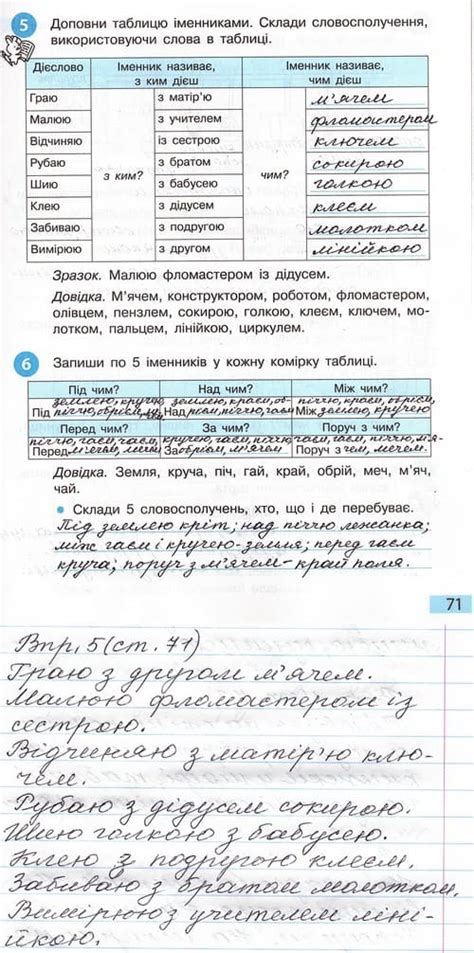 5 Доповни таблицю іменниками. Склади словосполучення,
використовуючи слова в таблиці.
Дієслово Іменник називає, з ким дієш Іменник називає, чим дієш
Граю з матір'ю м'ячем
Малюю з учителем фломастером
Відчиняю із сестрою ключем
Рубаю з ким? з братом чим? сокирою
Шию з бабусею голкою
Клею з дідусем клеєм
Забиваю з подругою молотком
Вимірюю з другом лінійкою
Зразок. Малюю фломастером із дідусем.
Довідка. М'ячем, конструктором, роботом, фломастером,
олівцем, пензлем, сокирою, голкою, клеєм, ключем, мо-
лотком, пальцем, лінійкою, циркулем.
6 Запиши по 5 іменників у кожну комірку таблиці.
Під чим? Над чим? Між чим?
землею, кручею, землею, краєм, об- піччю, краєм, обрієм,
Під піччю, обрієм, Над рієм, піччю, гаєм Між землею, кручею
Перед чим? За чим? Поруч з чим?
піччю, гаєм, чаєм, кручею, гаєм, піччю, чаєм, гаєм, піччю, м'я-
Перед м'ячем, мечем За обрієм, м'ячем Поруч з чем, мечем.
Довідка. Земля, круча, піч, гай, край, обрій, меч, м'яч,
чай.
• Склади 5 словосполучень, хто, що і де перебуває.
Під землею кріт; над піччю лежанка;
між гаєм і кручею-земля; перед гаєм
круча; поруч з м'ячем-край поля.
71
Впр. 5 (ст. 71)
Граю з другом м'ячем.
Малюю фломастером із
сестрою.
Відчиняю з матір'ю клю-
чем.
Рубаю з дідусем сокирою.
Шию голкою з бабусею.
Клею з подругою клеєм.
Забиваю з братом молотком.
Вимірюю з учителем ліні-
йкою.